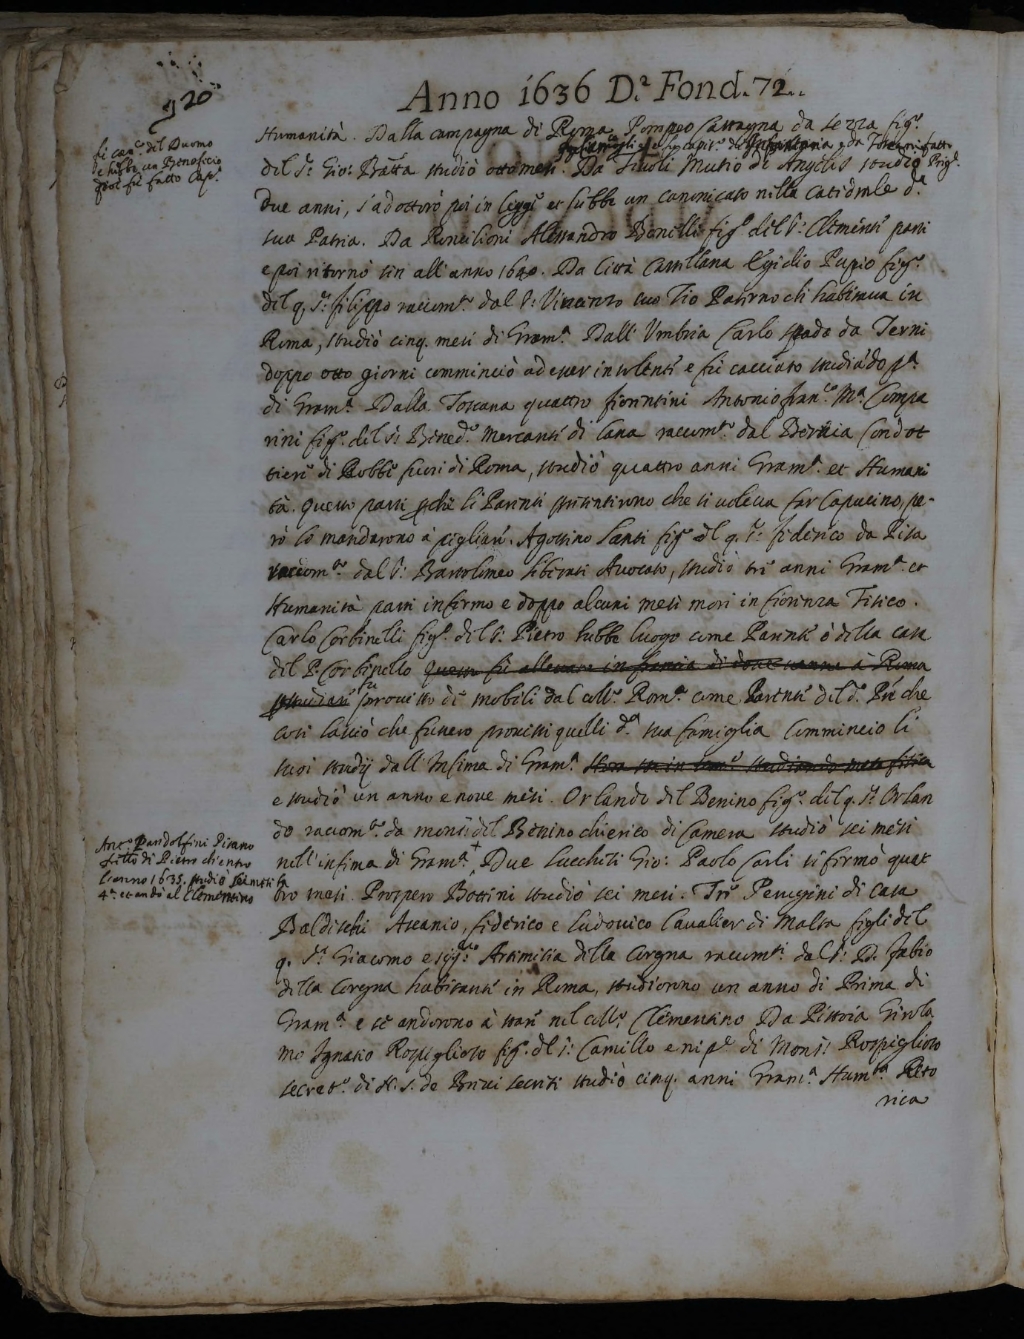 920
Anno 1636 D.ª Fond. 72.
fù can.co del Duomo
e hebbe un Beneficio
poi fù fatto Cap.
Humanità. Dalla campagna di Roma Pompeo Cattagna da Sezza fig.º
del S.r Gio: Batta studiò otto mesi. Da Tivoli Mutio de Angelis studiò
due anni, s'adottorò poi in legge et hebbe un canonicato nella Catedrale d.ª
sua Patria. Da Roncilioni Alessandro Bonilli fig.º del S.r Clemente partì
e poi ritornò sin all'anno 1640. Da Cività Castellana Egidio Pupio fig.º
del q. S.r filippo raccom.to dal S.r Vincenzo suo Tio Paterno che habitava in
Roma, studiò cinq. mesi di Gram.ª Dall'Umbria Carlo Spada da Terni
doppo otto giorni comminciò ad esser insolente e fù cacciato studiãdo p.ª
di Gram.ª Dalla Toscana quattro fiorentini Antonio fran.co M.ª Compa
rini fig.º del S.r Bened.º Mercante di lana raccom.to dal Bernia Condot
tiere di Robbe fuori di Roma, studiò quattro anni Gram.ª et Humani
tà. questo partì pche li Parenti presentirono che si voleva far Capucino, pe-
rò lo mandarono à pigliare. Agostino Santi fig.º del q. S.r federico da Pisa
raccom.to dal S.r Bartolomeo Avocato, studiò tre anni Gram.ª et
Humanità partì infermo e doppo alcuni mesi morì in fiorenza Tisico.
Carlo Corbinelli fig.º del S.r Pietro hebbe luogo come Parente ò della casa
del P. Corbinello questo fù allevato in francia di dove venne à Roma
provisto de mobili dal coll.º Rom.º come Parente del d.º P.re che
così lasciò che fussero provisti quelli d.ª sua famiglia Comminciò li
suoi studij dall'Infima di Gram.ª
e studiò un anno e nove mesi. Orlando del Benino fig.º del q. S.r Orlan
do raccom.to da mons.r del Benino chierico di Camera studiò sei mesi
nell'infima di Gram.ª + Due lucchesi Gio: Paolo Carli si fermò quat
tro mesi. Prospero Bottini studiò sei mesi. Tre Perugini di casa
Baldeschi Ascanio, federico e ludovico Cavalier di Malta figli del
q. S.r Giacomo e Artimitia della Corgna raccom.ti dal S.r D. fabio
della Corgna habitante in Roma, studiorono un anno di Prima di
Gram.ª e se andorono à stare nel coll.º Clementino Da Pistoia Girola
mo Ignatio Rospiglioso fig.º del S.r Camillo e nip.e di Mons.r Rospiglioso
secret.º di N. S. de Brevi secreti studiò cinq. anni Gram.ª Hum.tà Reto
rica
Ant.º Pandolfini Pisano
di Pietro ch'entrò
l'anno 1635. studiò sei mesi la
4.ª et andò al Clementino